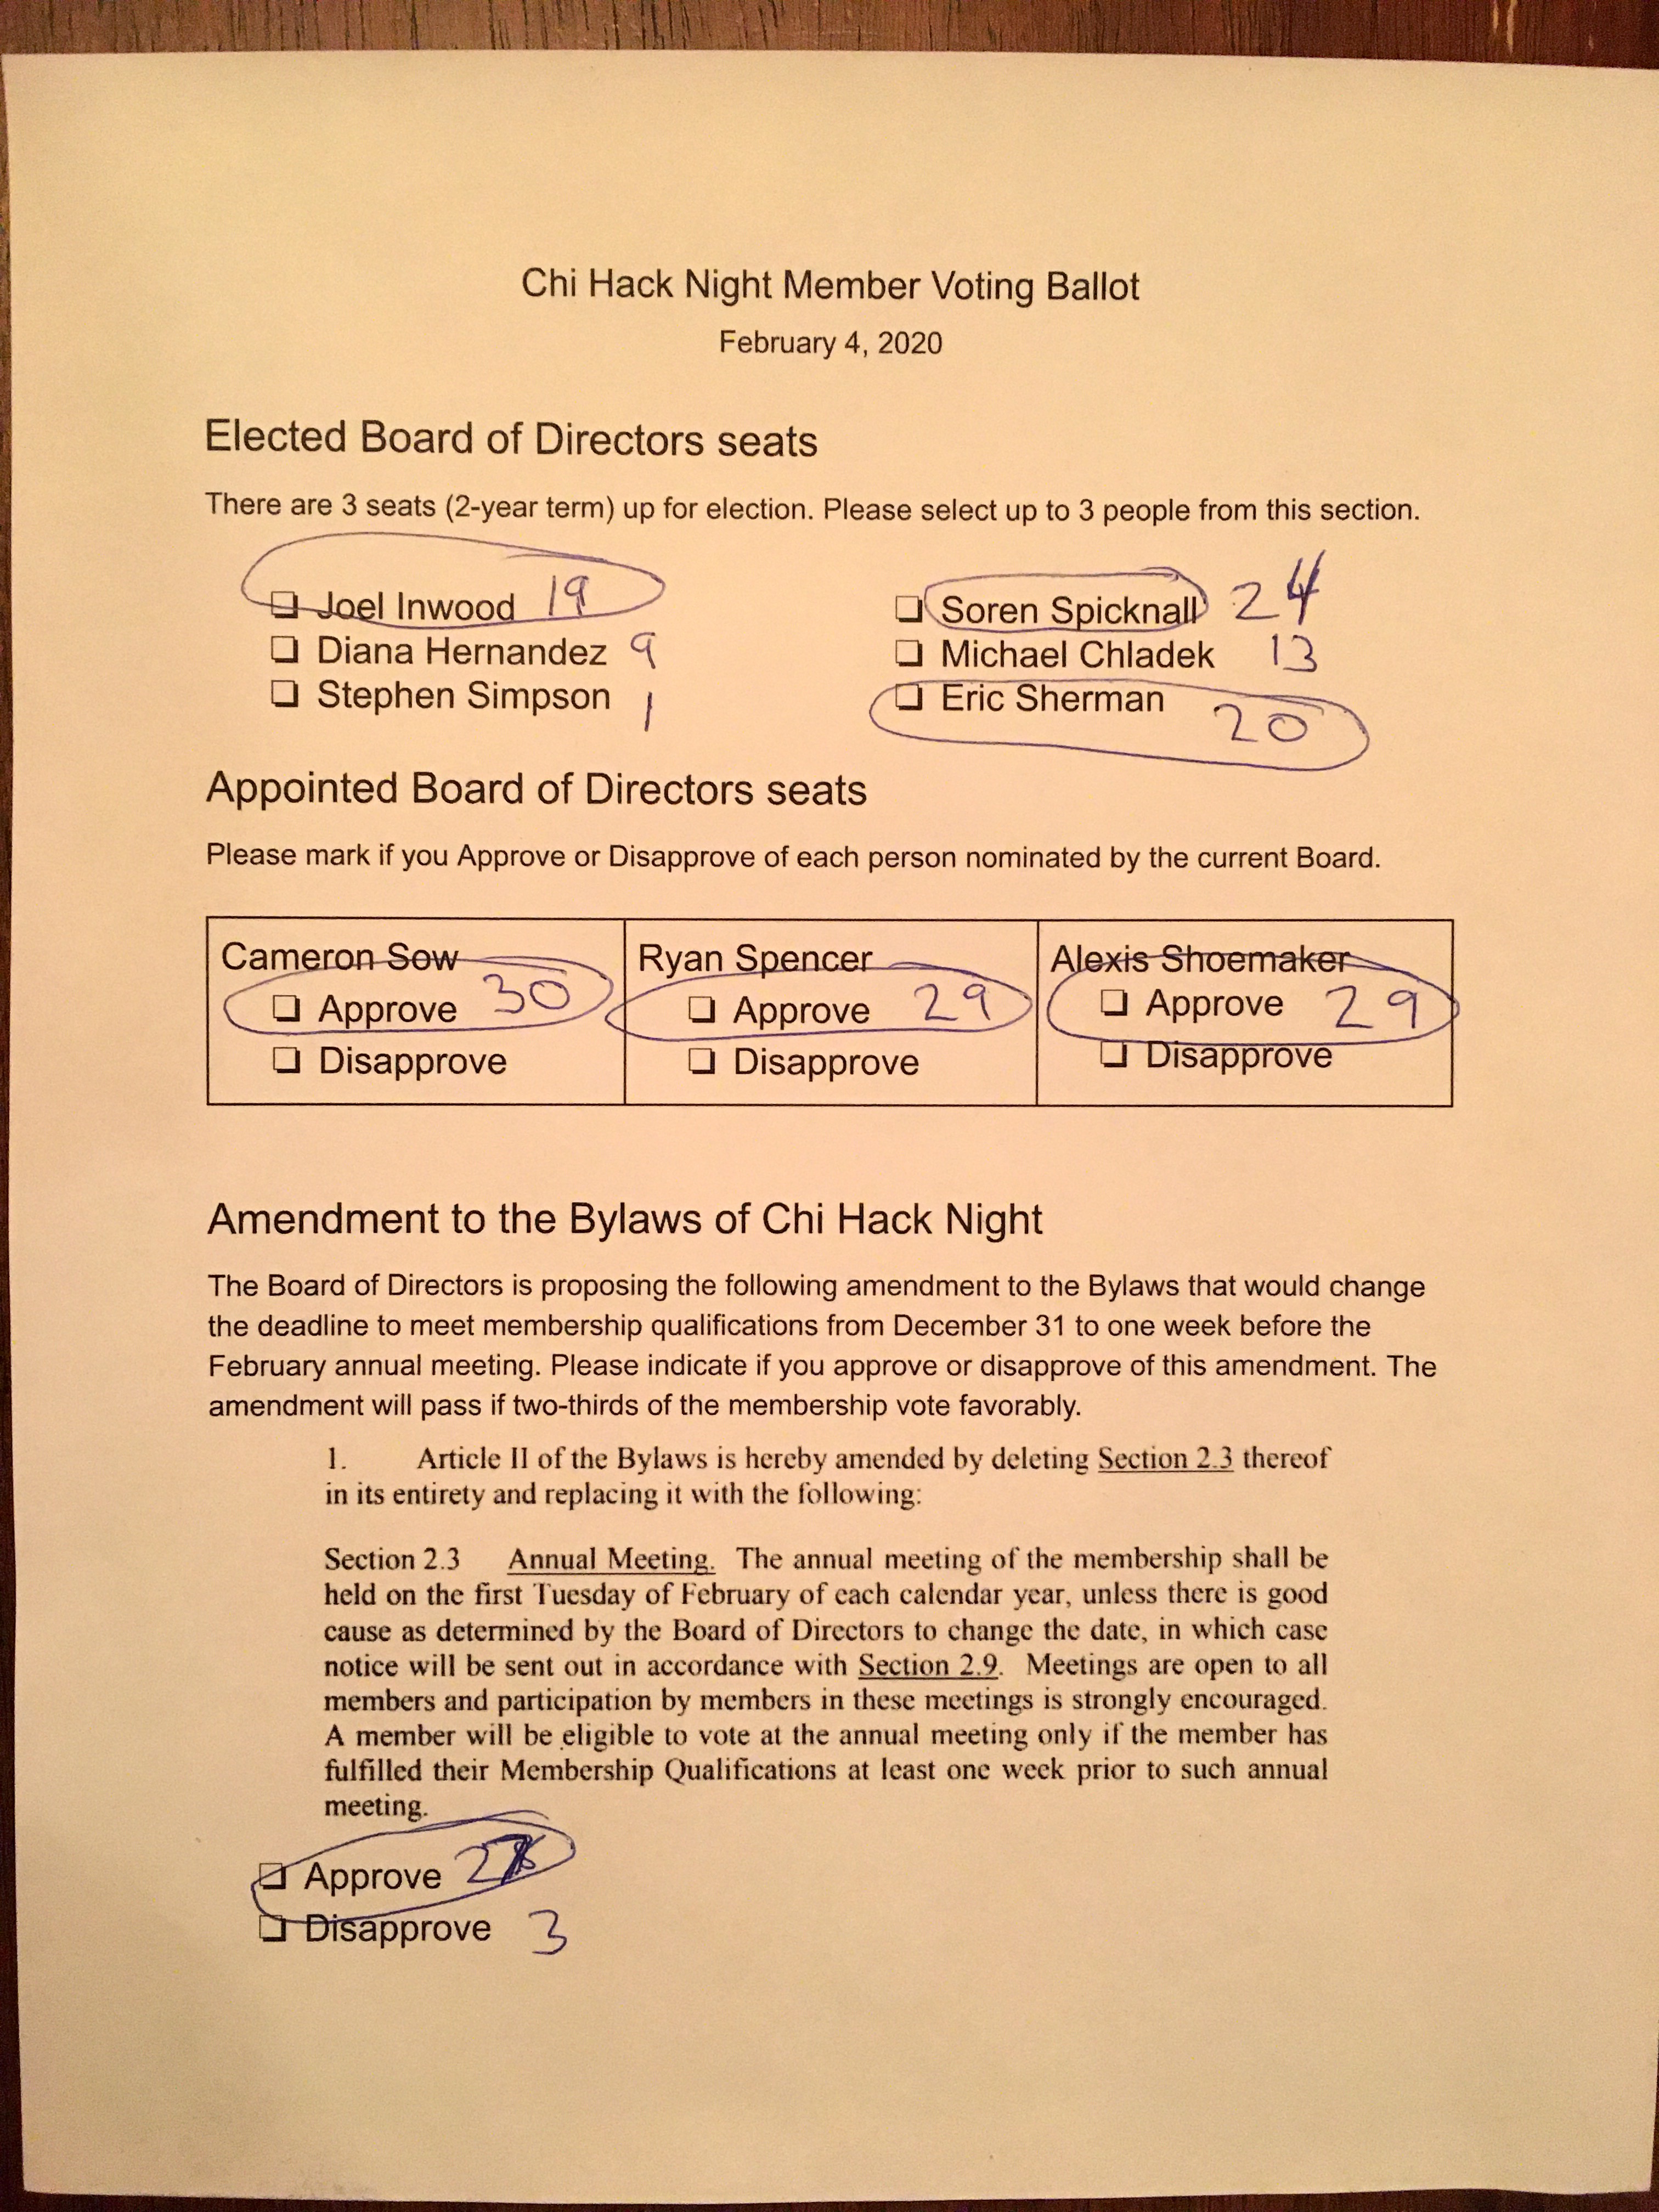 Chi Hack Night Member Voting Ballot
February 4, 2020
Elected Board of Directors seats
There are 3 seats (2-year term) up for election. Please select up to 3 people from this section.
❏ Joel Inwood 19
❏ Diana Hernandez 9
❏ Stephen Simpson 1
❏ Soren Spicknall 24
❏ Michael Chladek 13
❏ Eric Sherman 20
Appointed Board of Directors seats
Please mark if you Approve or Disapprove of each person nominated by the current Board.
Cameron Sow
❏ Approve 30
❏ Disapprove
Ryan Spencer
❏ Approve 29
❏ Disapprove
Alexis Shoemaker
❏ Approve 29
❏ Disapprove
Amendment to the Bylaws of Chi Hack Night
The Board of Directors is proposing the following amendment to the Bylaws that would change
the deadline to meet membership qualifications from December 31 to one week before the
February annual meeting. Please indicate if you approve or disapprove of this amendment. The
amendment will pass if two-thirds of the membership vote favorably.
1. Article II of the Bylaws is hereby amended by deleting Section 2.3 thereof
in its entirety and replacing it with the following:
Section 2.3 Annual Meeting. The annual meeting of the membership shall be
held on the first Tuesday of February of each calendar year, unless there is good
cause as determined by the Board of Directors to change the date, in which case
notice will be sent out in accordance with Section 2.9. Meetings are open to all
members and participation by members in these meetings is strongly encouraged.
A member will be eligible to vote at the annual meeting only if the member has
fulfilled their Membership Qualifications at least one week prior to such annual
meeting.
❏ Approve
❏ Disapprove 3